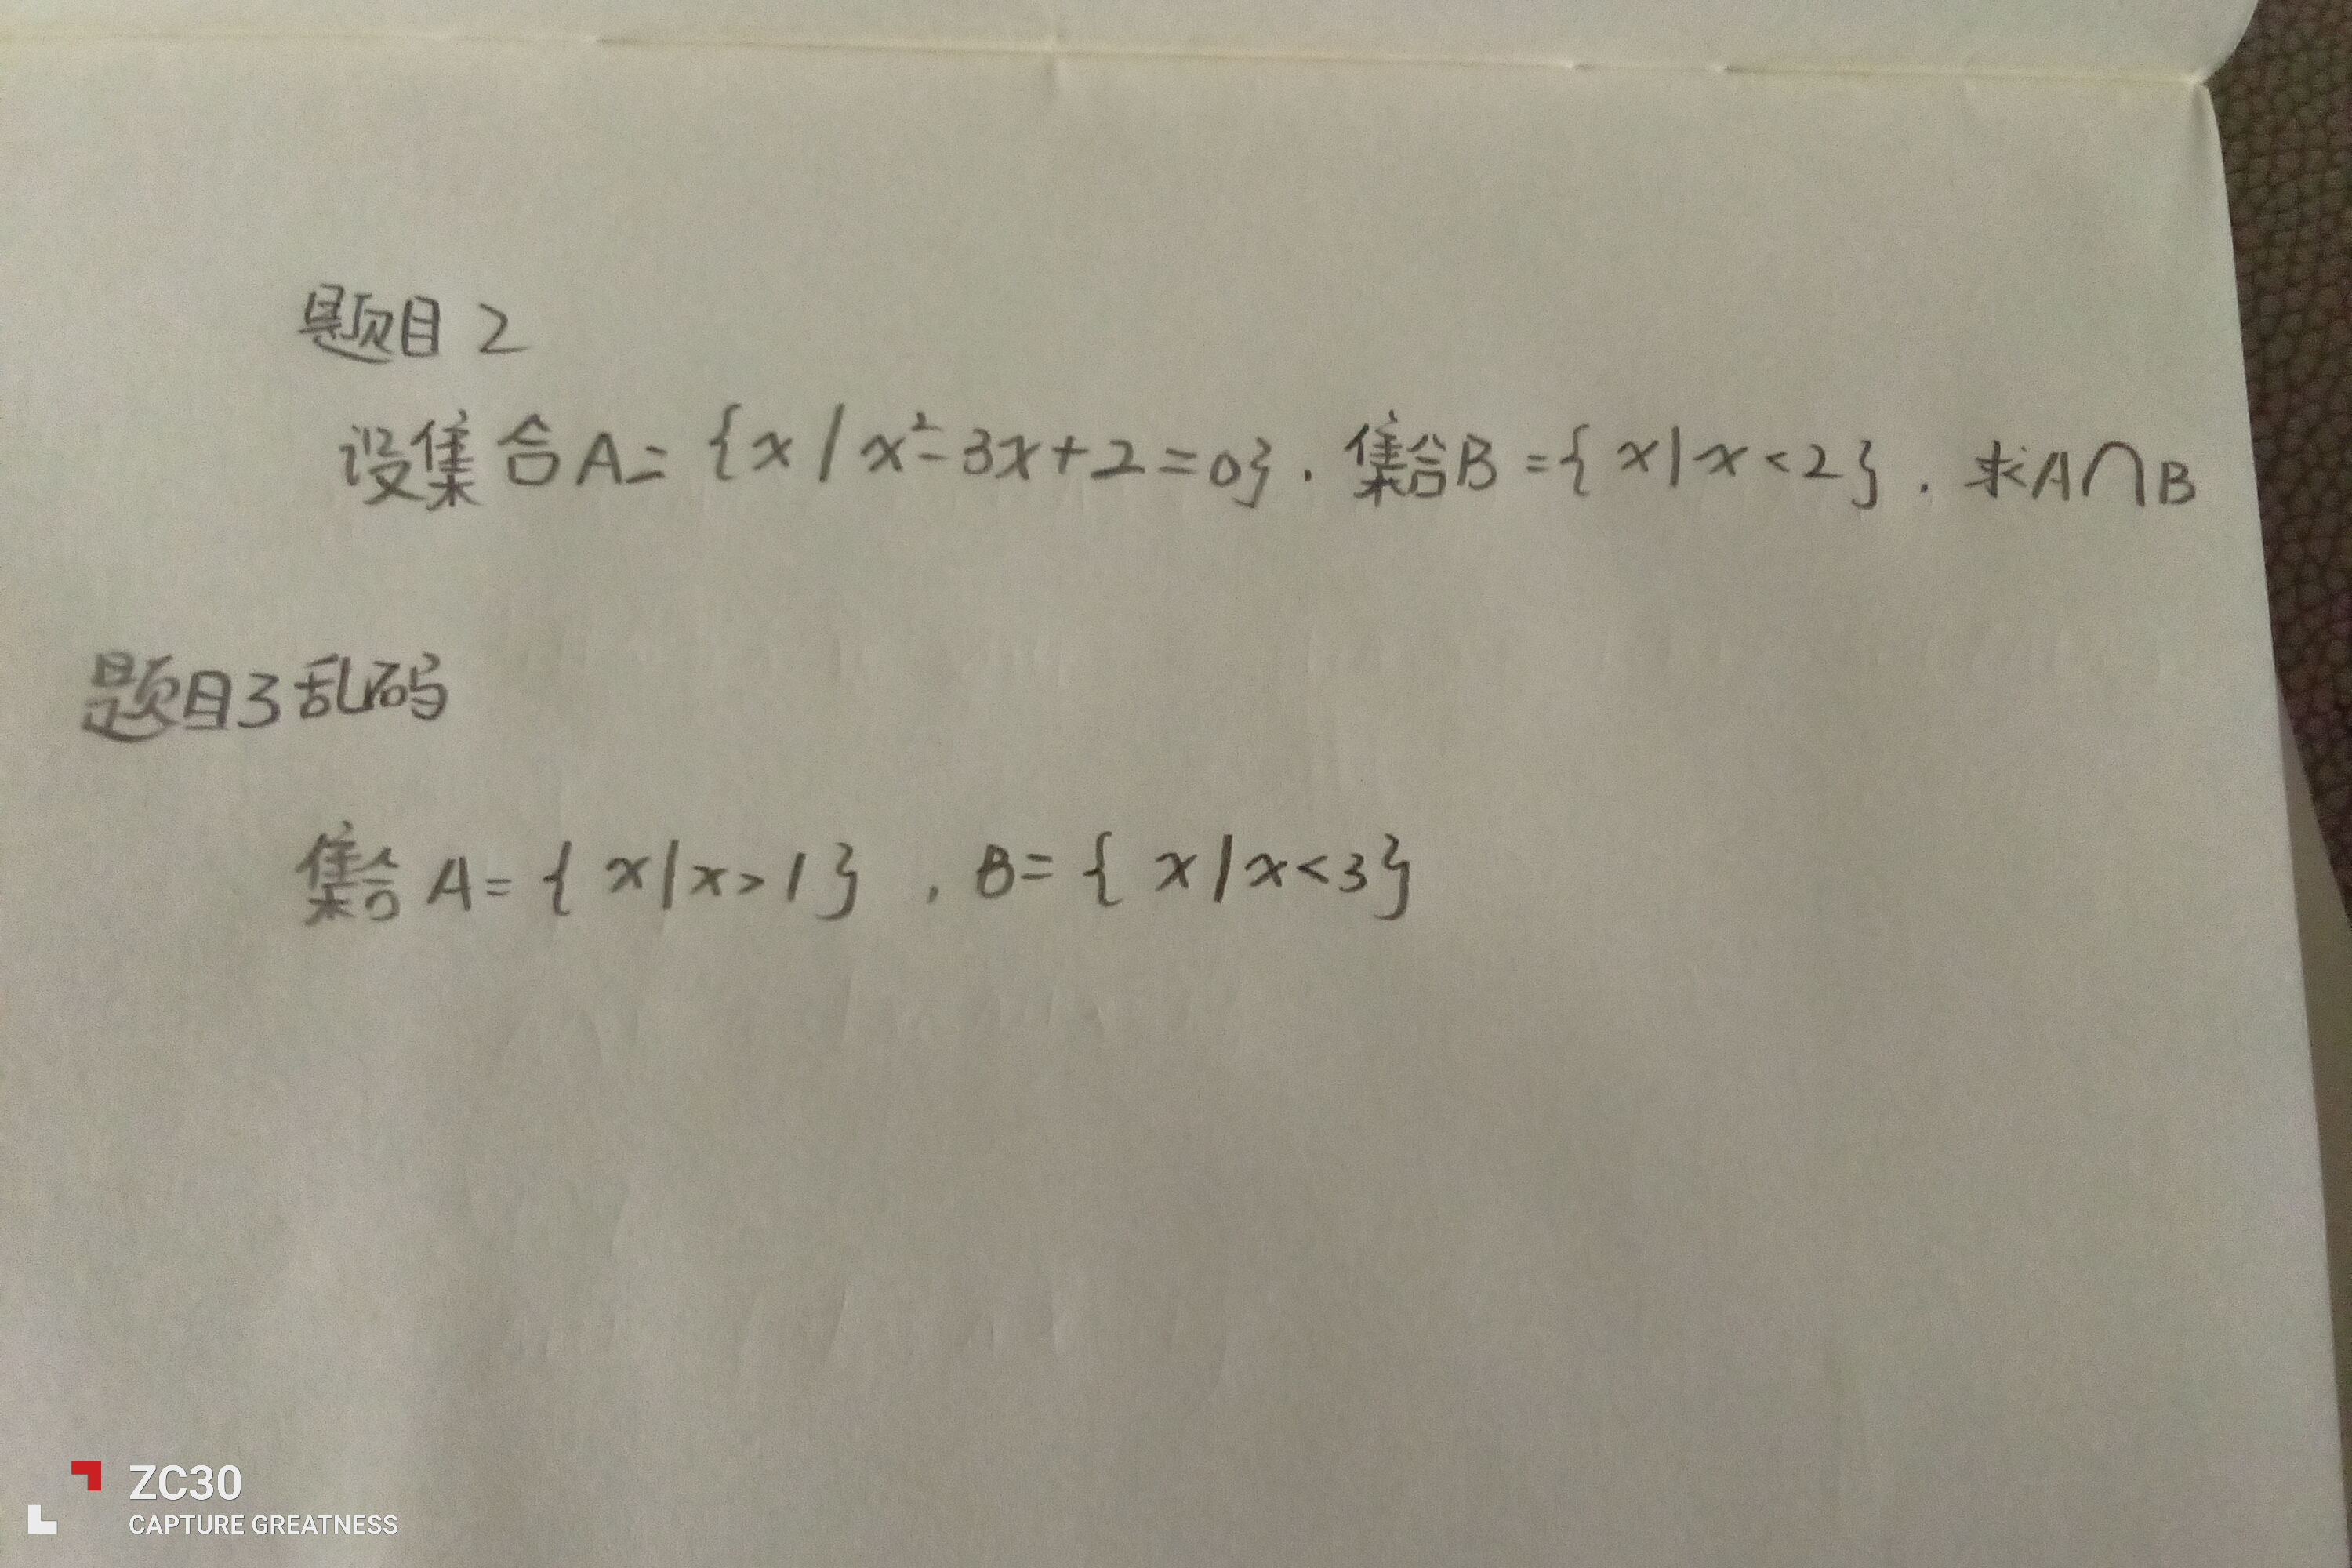 题目 2
设集合A={x|x²-3x+2=0}.集合B={x|x<2}.求A∩B
题目3乱码
集合A={x|x>1},B={x|x<3}
ZC30
CAPTURE GREATNESS